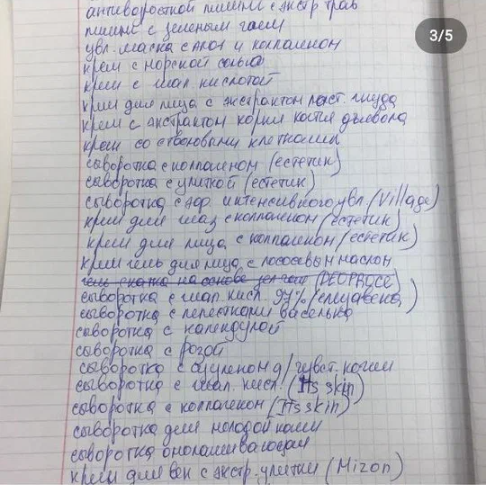 антивороетной пилинг с экстр трав
3/5
пилинг с зеленым чаем
увл. маска с алоэ и коллагеном
крем с морской солью
крем с гиал. кислотой
крем для лица с экстрактом ласт. гнезда
крем с экстрактом корня когтя дьявола
крем со стволовыми клетками
сыворотка с коллагеном (естетик)
сыворотка с улиткой (естетик)
сыворотка с эф. интенсивного увл. (Village)
крем для глаз с коллагеном (естетик)
крем для лица с коллагеном (естетик)
крем гель для лица, с лососевым маслом
гель скатка на основе (DEOPROCE)
сыворотка с гиал. кисл. 97%
сыворотка с лепестками василька
сыворотка с календулой
сыворотка с розой
сыворотка с азуленом д/чувст. кожи
сыворотка с гиал. кисл. (Its skin)
сыворотка с коллагеном (Its skin)
сыворотка для молодой кожи
сыворотка омолаживающая
крем для век с экстр. улитки (Mizon)